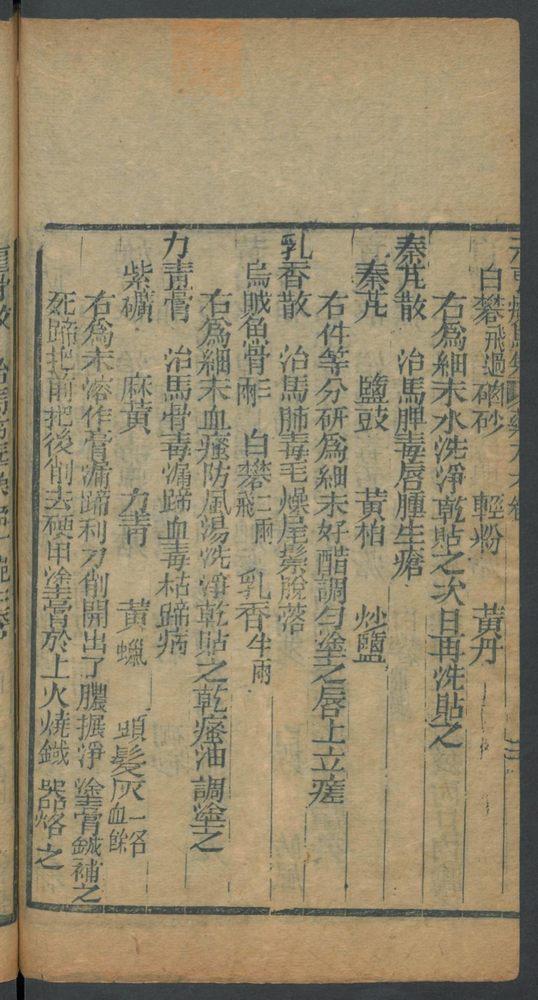 白礬飛過 硇砂 輕粉 黃丹
右爲細末水洗淨乾貼之次日再洗貼之
秦艽散 治馬脾毒唇腫生瘡
秦艽 鹽豉 黃柏 炒鹽
右件等分研爲細末好醋調勻塗之唇上立瘥
乳香散 治馬肺毒毛燥尾鬃脫落
烏賊魚骨二兩 白礬二兩飛 乳香半兩
右爲細末血瘙防風湯洗淨乾貼之乾瘙油調塗之
力青膏 治馬骨毒漏蹄血毒枯蹄病
紫礦 麻黃 力青 黃蠟 頭髮灰一名血餘
右爲末溶作膏漏蹄利刀削開出了膿掘淨塗膏鍼補之
死蹄把前把後削去硬甲塗膏於上火燒鐵器烙之